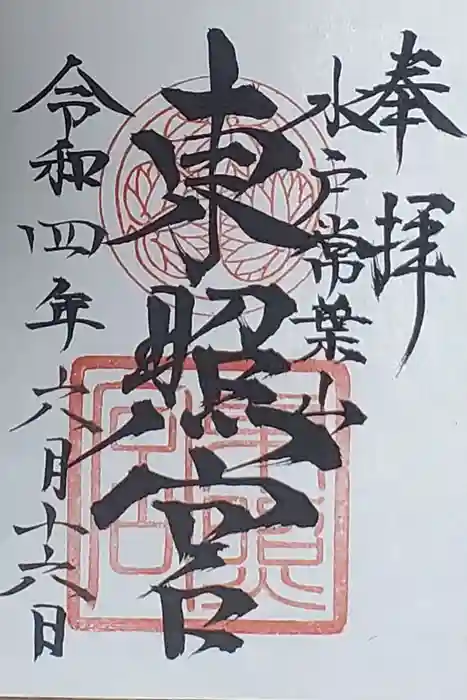 奉拝
水戸常葉山
東照宮
令和四年六月十六日